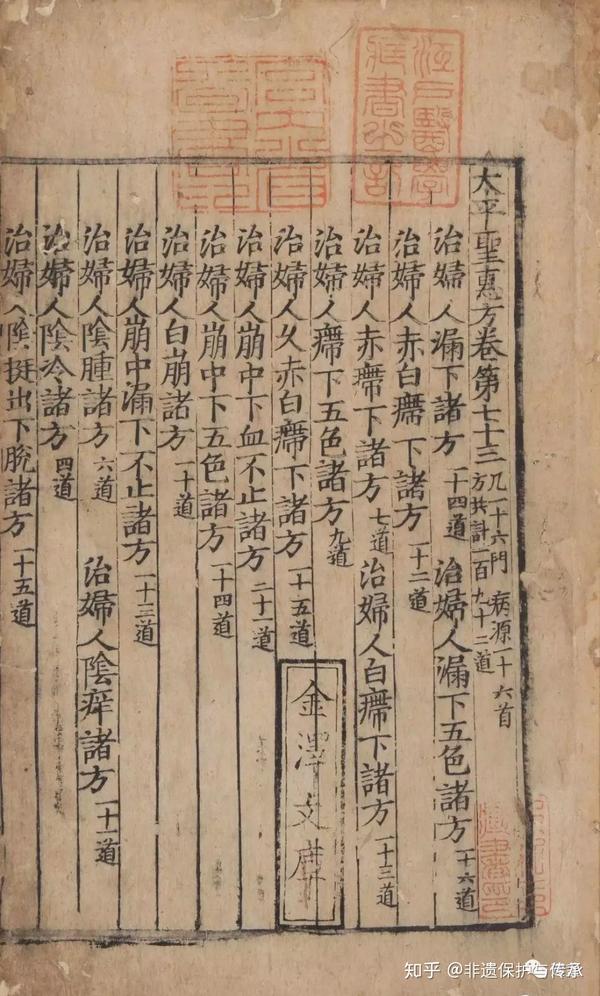 江戶醫學
藏書之記
太平聖惠方卷第七十三 凡一十六門 病源一十六首
方共計一百九十二道
治婦人漏下諸方 一十四道 治婦人漏下五色諸方 一十六道
治婦人赤白㿃下諸方 一十二道
治婦人赤㿃下諸方 七道 治婦人白㿃下諸方 一十三道
治婦人㿃下五色諸方 九道
治婦人久赤白㿃下諸方 一十五道
金澤文庫
治婦人崩中下血不止諸方 二十一道
治婦人崩中下五色諸方 一十四道
治婦人白崩諸方 一十道
治婦人崩中漏下不止諸方 一十三道
治婦人陰腫諸方 六道 治婦人陰痒諸方 一十一道
治婦人陰冷諸方 四道
治婦人陰挺出下脫諸方 一十五道
知乎 @非遗保护与传承